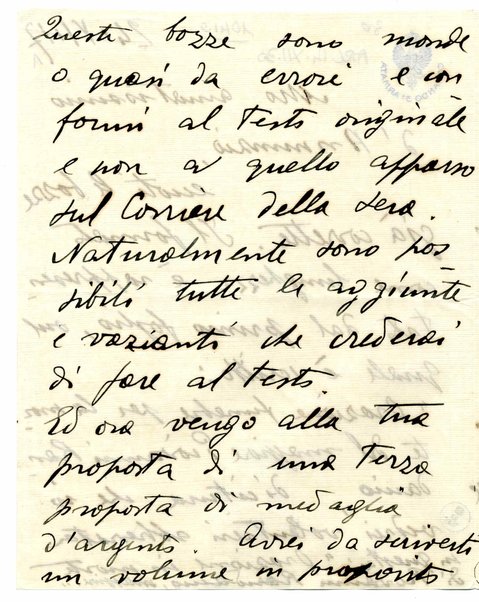 Queste bozze sono monde
o quasi da errori e con
formi al testo originale
e non a quello apparso
sul Corriere della sera.
Naturalmente sono pos
sibili tutte le aggiunte
e varianti che crederai
di fare al testo.
Ed ora vengo alla tua
proposta di una terza
proposta di medaglia
d'argento. Avrei da scriverti
un volume in proposito